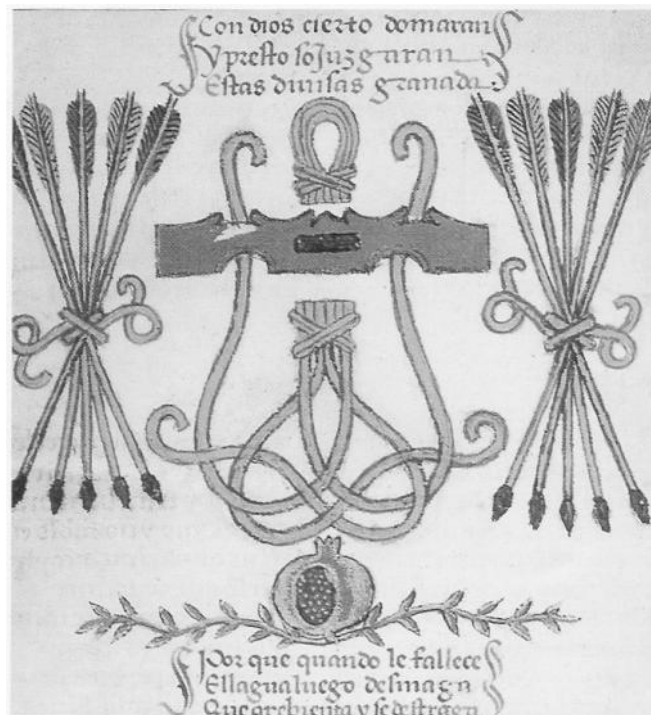 Con dios cierto domaran
Y presto sojuzgaran
Estas diuisas granada
Por que quando le fallece
El lagua luego desmaga
Que rebienta y se destraga